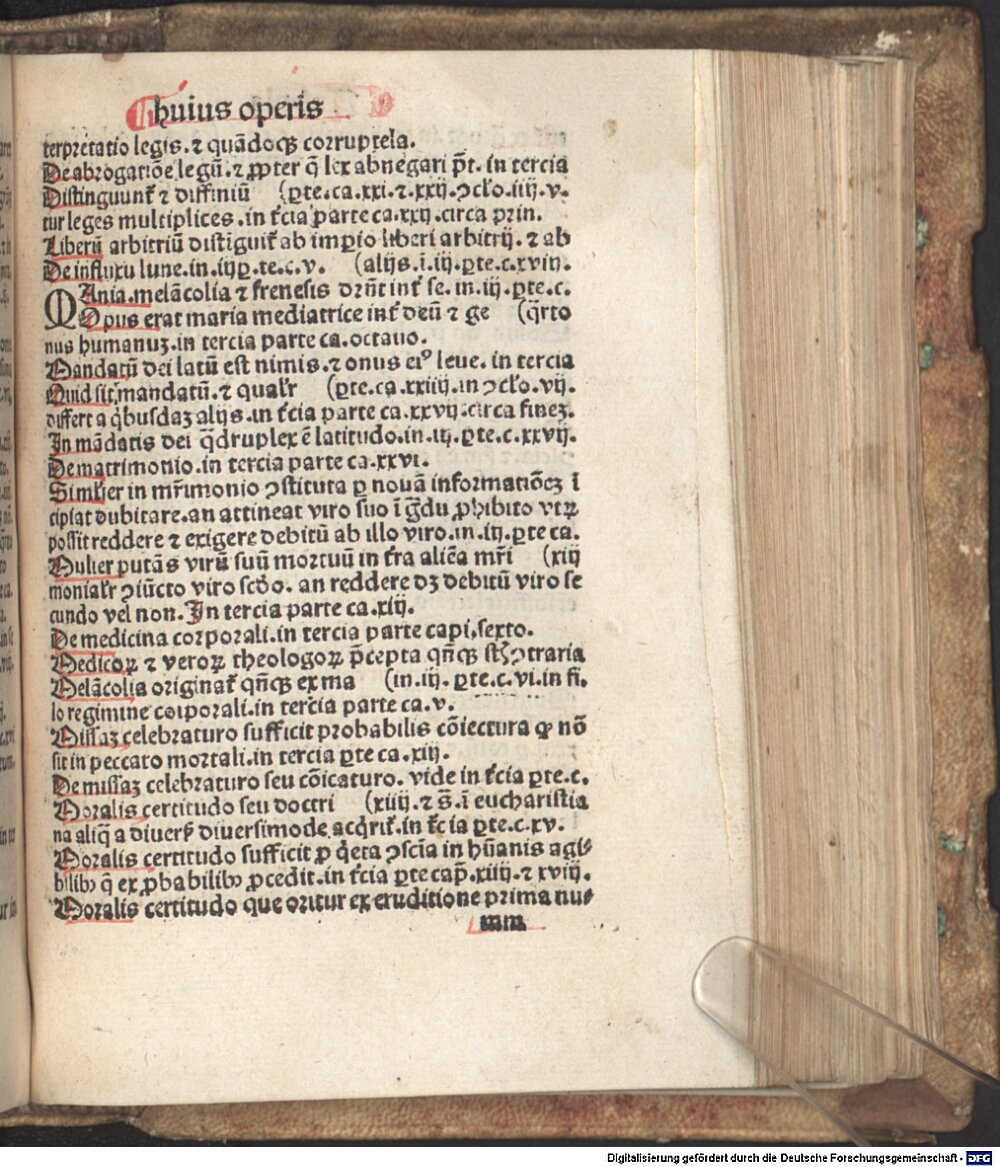 huius operis
terpretatio legis. ⁊ quādoqꝫ corruptela.
De abrogatiōe legū. ⁊ ꝓpter q̄ lex abnegari pōt. in tercia
Distinguunt̄ ⁊ diffiniū (ꝑte.ca.xxi.⁊.xxij.ↄcło.iiij.v.
tur leges multiplices.in t̄cia parte ca.xxij.circa prin.
Liberū arbitriū distīguit̄ ab imꝑio liberi arbitrij. ⁊ ab
De influxu lune.in.iijꝑ.te.c.v. (alijs.ī.iij.ꝑte.c.xviij.
MAnia.melācolia ⁊ frenesis dr̄nt int̄ se.in.iij.ꝑte.c.
Opus erat maria mediatrice int̄ deū ⁊ ge (q̄rto
nus humanuꝫ.in tercia parte ca.octauo.
Mandatū dei latū est nimis.⁊ onus eiꝰ leue. in tercia
Quid sit mandatū.⁊ qualr̄ (ꝑte.ca.xxiiij.in ↄcło.vij.
differt a q̄busdaꝫ alijs.in t̄cia parte ca.xxvij.circa fineꝫ.
In mādatis dei q̄druplex ē latitudo.in.iij.ꝑte.c.xxvij.
De matrimonio.in tercia parte ca.xxvi.
Simłier in mr̄imonio ↄstituta ꝑ nouā informatiōeꝫ ī
cipiat dubitare.an attineat viro suo ī gͣdu ꝓhibito vtꝝ
possit reddere ⁊ exigere debitū ab illo viro.in.iij.ꝑte ca.
Mulier putās virū suū mortuū in t̄ra aliēa mr̄i (xiij
monialr̄ ↄiūcto viro scd̄o. an reddere dꝫ debitū viro se
cundo vel non. In tercia parte ca.xiij.
De medicina corporali.in tercia parte capi.sexto.
Medicoꝝ ⁊ veroꝝ theologoꝝ p̄cepta qn̄qꝫ st̄ ↄtraria
Melācolia originat̄ qn̄qꝫ ex ma (in.iij. ꝑte.c.vi.in fi.
lo regimine corporali.in tercia parte ca.v.
Missaꝫ celebraturo sufficit probabilis cōiectura ꝙ nō
sit in peccato mortali.in tercia ꝑte ca.xiij.
De missaꝫ celebraturo seu cōicaturo. vide in t̄cia ꝑte.c.
Moralis certitudo seu doctri (xiiij.⁊ s̄.ī eucharistia
na aliq̄ a diuers̄ diuersimode acq̄rit̄.in t̄cia ꝑte.c.xv.
Moralis certitudo sufficit ꝓ q̄eta ↄscīa in hūanis agi⸗
bilibꝫ q̄ ex ꝓbabilibꝫ ꝓcedit.in t̄cia ꝑte cap̄.xiiij.⁊ xviij.
Moralis certitudo que oritur ex eruditione prima nu⸗